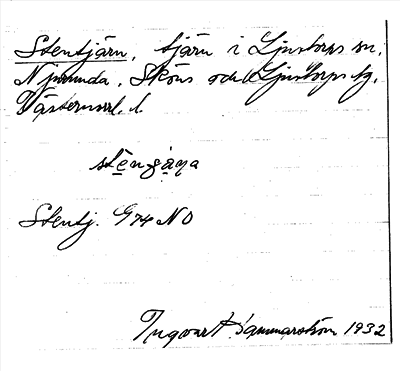 Stentjärn, tjärn i Ljustorps sn.
Njurunda, Sköns och Ljustorps tg.
Västernorrl. l.
Stentj. G74 NO
Ingvart Hammarström 1932